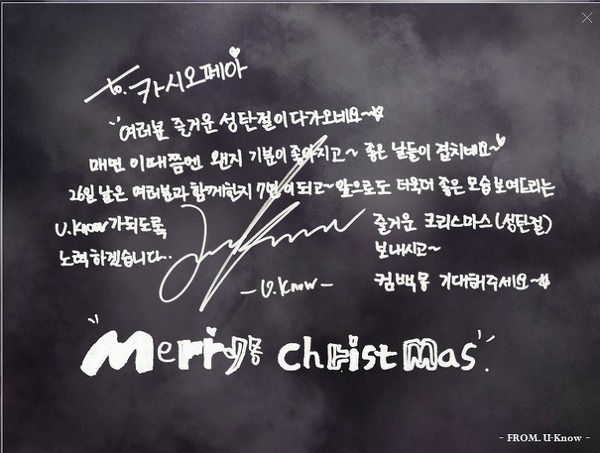 to. 카시오페아
여러분 즐거운 성탄절이 다가오네요~
매면 이때쯤엔 왠지 기분이 좋아지고~ 좋은 날들이 겹치네요~
26일 날은 여러분과 함께한지 7년이 되고~ 앞으로도 더욱더 좋은 모습 보여드리는
U.Know가 되도록
노력하겠습니다..
즐거운 크리스마스(성탄절)
보내시고~
컴백두 기대해주세요~
- U.Know -
Merry christmas
- FROM. U-Know -